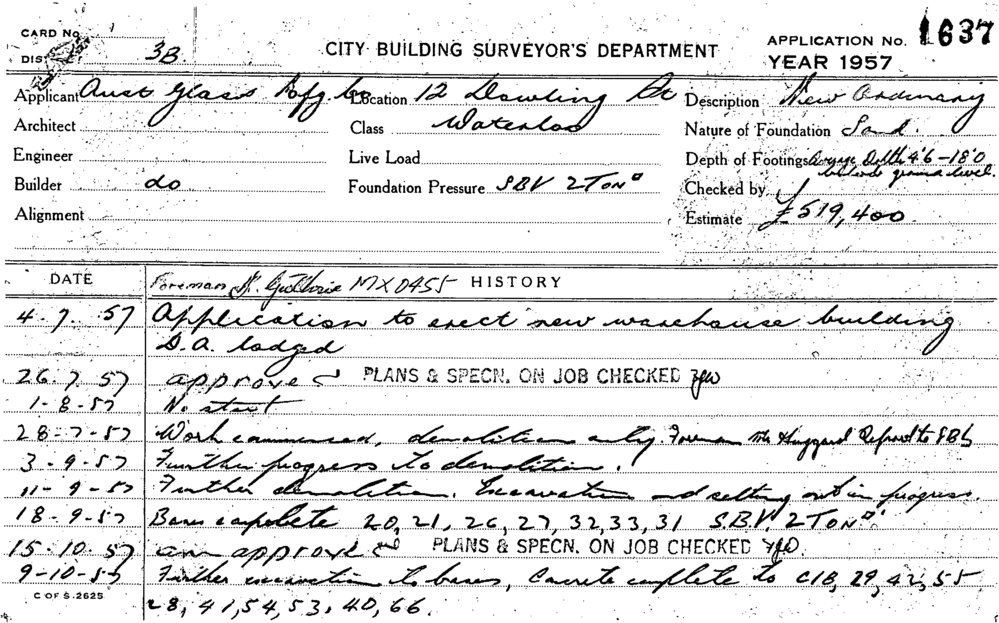 CARD No.
DIS 3B. CITY BUILDING SURVEYOR'S DEPARTMENT APPLICATION No. 1637
YEAR 1957
Applicant Aust Glass Mfg. Co Location 12 Dowling St Description New Ordinary
Architect Class Waterloo Nature of Foundation Sand.
Engineer Live Load Depth of Footings Depth 4'6 - 18'0
below ground level.
Builder do Foundation Pressure SBV 2 Ton□ Checked by
Alignment Estimate £519,400.
DATE Foreman Guthrie MX0455 HISTORY
4.7.57 Application to erect new warehouse building
D.A. lodged
26.7.57 approved PLANS & SPECN. ON JOB CHECKED
1-8-57 No start
28-7-57 Work commenced, demolition only Foreman Mr Huggard Refered to SBS
3-9-57 Further progress to demolition.
11-9-57 Further demolition. Excavation and setting out in progress.
18-9-57 Bases complete 20, 21, 26, 27, 32, 33, 31 S.B.V. 2 Ton□'
15.10.57 am approved PLANS & SPECN. ON JOB CHECKED
9-10-57 Further excavation to bases, Concrete complete to C18, 29, 42, 55
28, 41, 54, 53, 40, 66.
C OF S. 2625